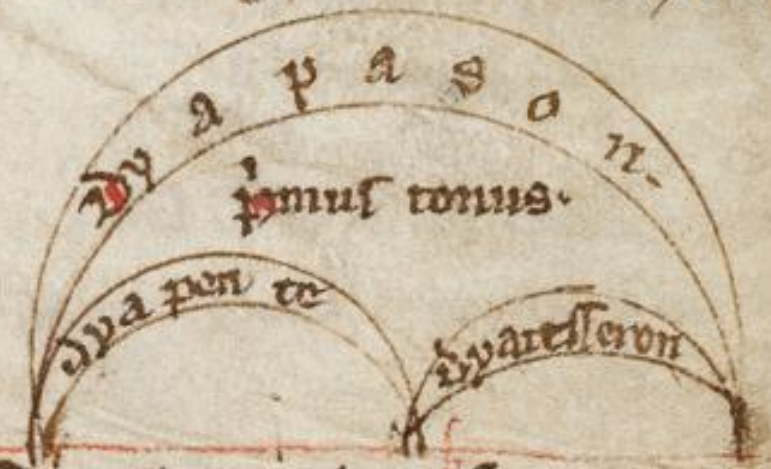 Dyapason.
p̍mus tonus.
dyapente
dyatesseron